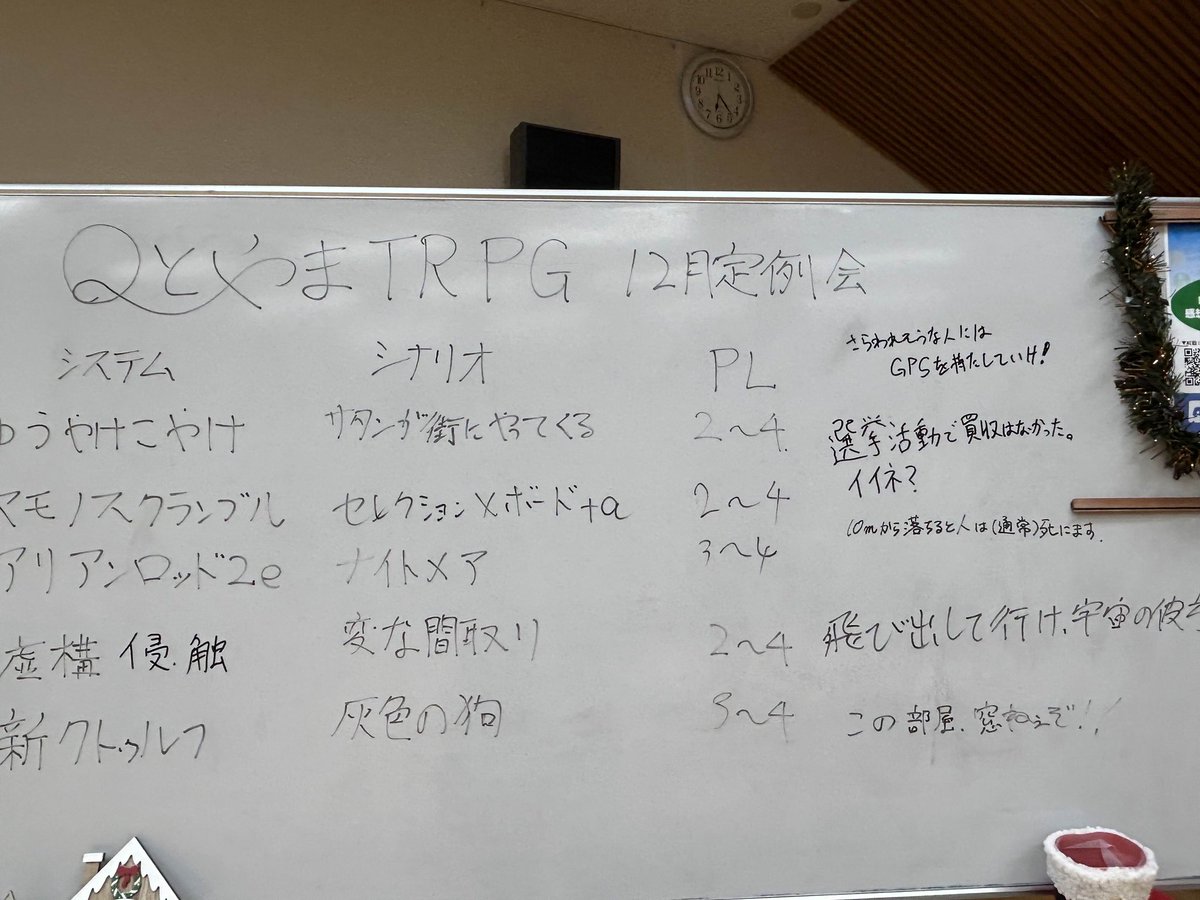 Qとやつま TRPG 12月定例会
システム シナリオ PL
さらわれそうな人には
GPSを持たしていけ!
ゆうやけこやけ サタンが街にやってくる 2〜4
選挙活動で買収はなかった。
イイネ?
マモノスクランブル セレクション×ボード+a 2〜4
10mから落ちると人は(通常)死にます.
アリアンロッド2e ナイトメア 3〜4
虚構侵触 変な間取り 2〜4 飛び出して行け、宇宙の彼方
新クトゥルフ 灰色の狗 3〜4 この部屋、窓ねぇぞ!!